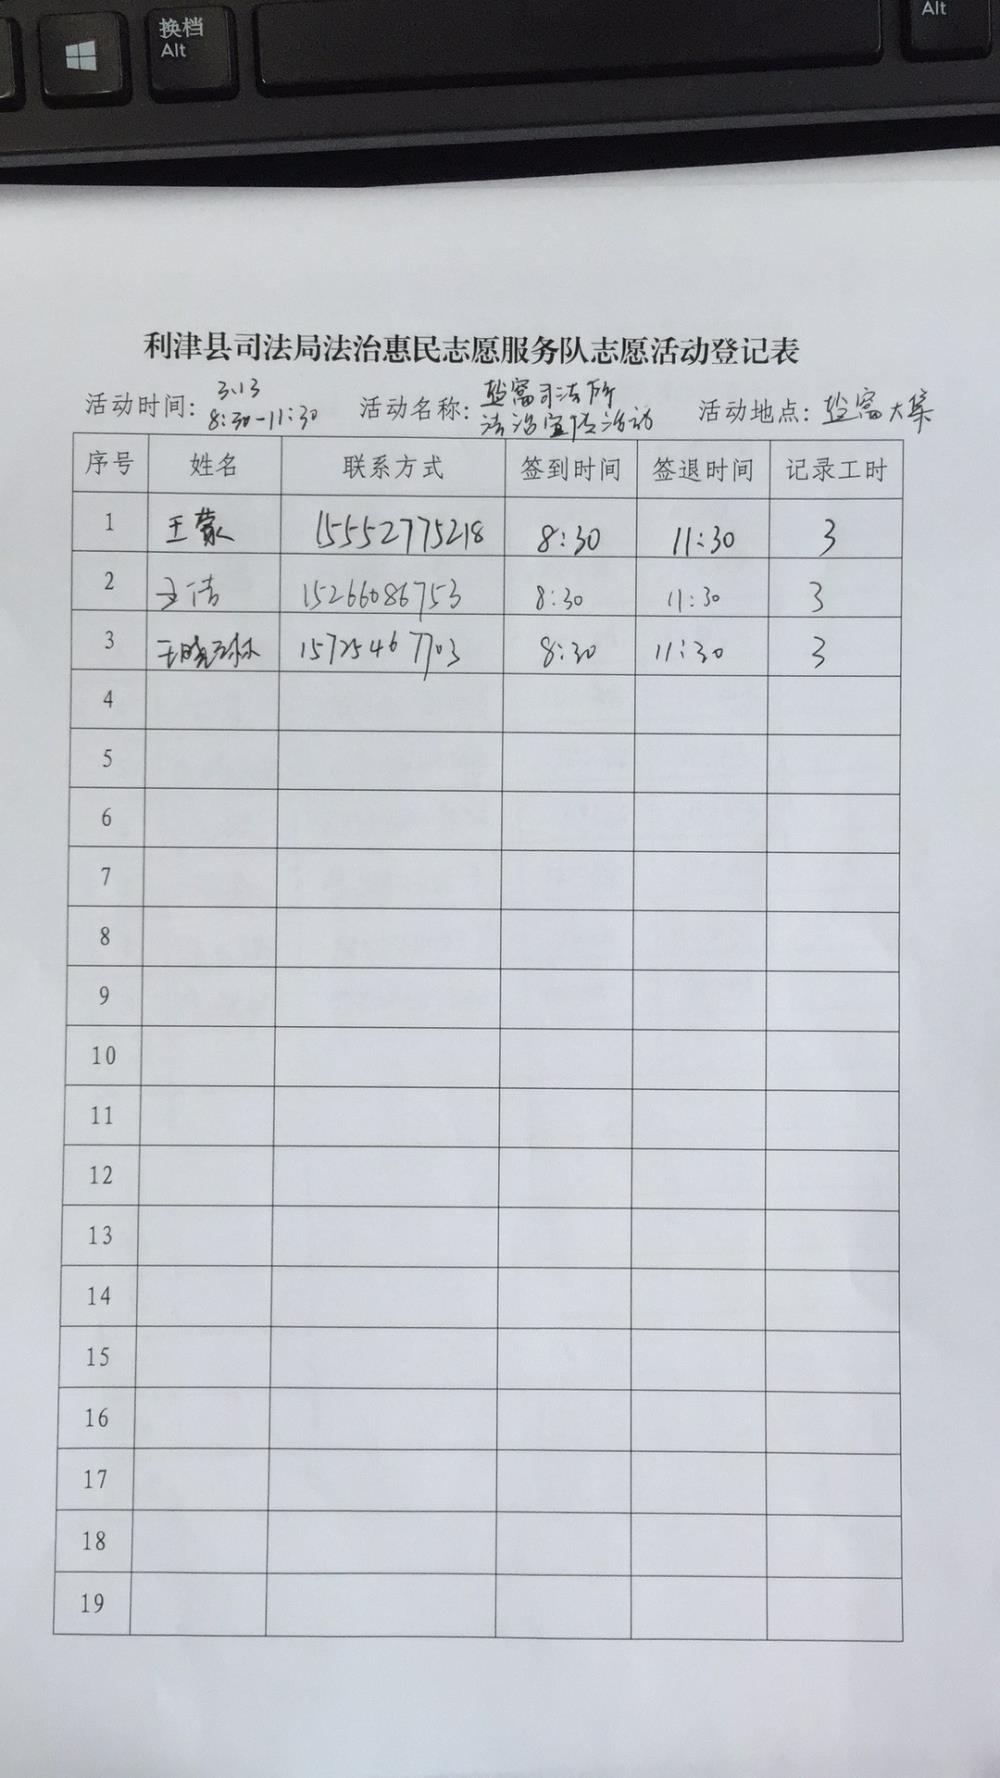 换档
Alt
Alt
利津县司法局法治惠民志愿服务队志愿活动登记表
活动时间: 3.13 8:30-11:30 活动名称: 盐窝司法所 法治宣传活动 活动地点: 盐窝大集
序号 姓名 联系方式 签到时间 签退时间 记录工时
1 王蒙 15552775218 8:30 11:30 3
2 15266086753 8:30 11:30 3
3 王晓 15725467703 8:30 11:30 3
4
5
6
7
8
9
10
11
12
13
14
15
16
17
18
19